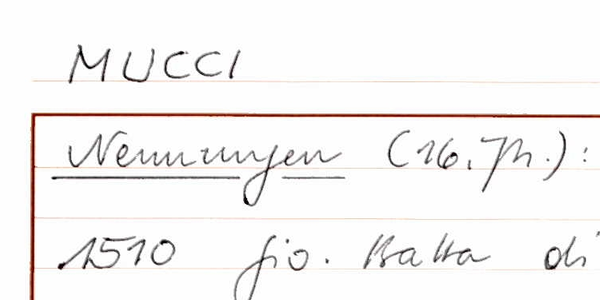 MUCCI
Nennungen (16. Jh.):
1510 Gio. Batta di